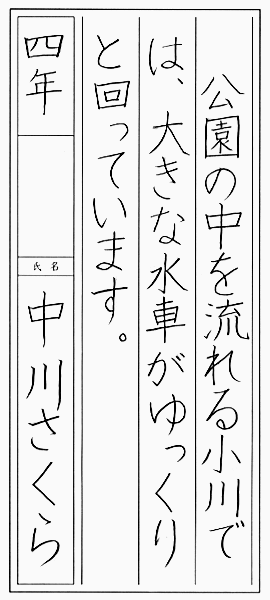 公園の中を流れる小川で
は、大きな水車がゆっくり
と回っています。
四年
氏名
中川さくら